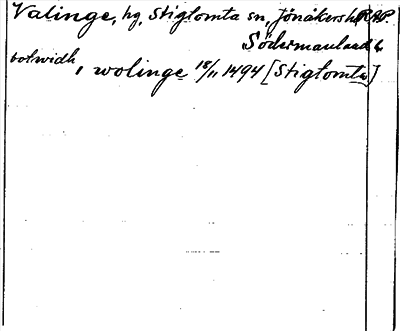 Valinge, hg, Stigtomta sn, Jönåkers hd RAP.
Södermanland
botwidh, wolinge 18/11 1494 [Stigtomta]